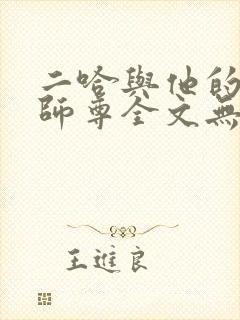 二哈與他的
師尊全文無
王進良